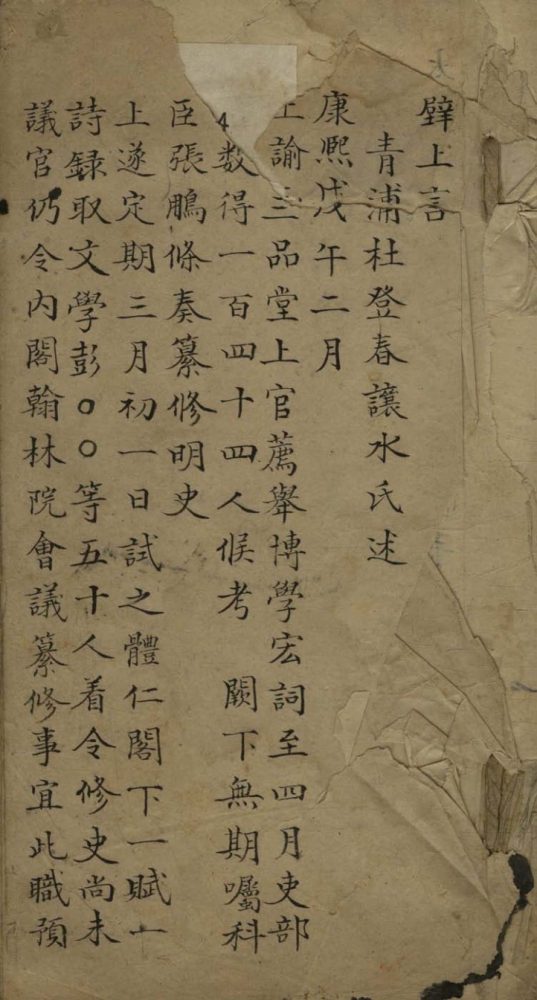 壁上言
青浦杜登春讓水氏述
康熈戊午二月
上諭三品堂上官薦舉博學宏詞至四月吏部
数得一百四十四人候考 闕下無期囑科
臣張鵬條奏纂修明史
上遂定期三月初一日試之體仁閣下一賦一
詩録取文學彭〇〇等五十人着令修史尚未
議官仍令内閣翰林院會議纂修事宜此職預